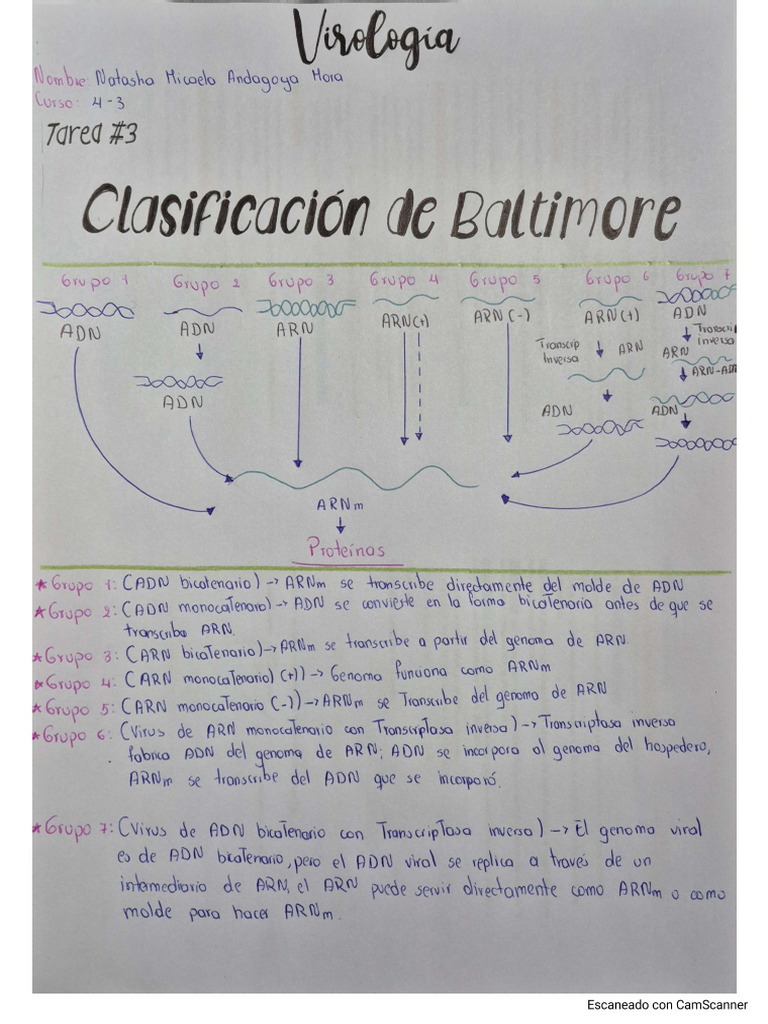 Virología
Nombre: Natasha Micaela Andagoya Mora
Curso: 4-3
Tarea #3
Clasificación de Baltimore
Grupo 1 Grupo 2 Grupo 3 Grupo 4 Grupo 5 Grupo 6 Grupo 7
ADN ADN ARN ARN(+) ARN(-) ARN(+) ADN
Transcrip
Inversa
ARN
ARN
Transcrip
inversa
ARN-ADN
ADN
ADN
ADN
ARNm
Proteínas
*Grupo 1: (ADN bicatenario) → ARNm se transcribe directamente del molde de ADN
*Grupo 2: (ADN monocatenario) → ADN se convierte en la forma bicatenaria antes de que se
transcriba ARN.
*Grupo 3: (ARN bicatenario) → ARNm se transcribe a partir del genoma de ARN.
*Grupo 4: (ARN monocatenario) (+)) → Genoma funciona como ARNm
*Grupo 5: (ARN monocatenario (-)) → ARNm se Transcribe del genoma de ARN
*Grupo 6: (Virus de ARN monocatenario con Transcriptasa inversa) → Transcriptasa inversa
fabrica ADN del genoma de ARN; ADN se incorpora al genoma del hospedero,
ARNm se transcribe del ADN que se incorporó.
*Grupo 7: (Virus de ADN bicatenario con Transcriptasa inversa) → El genoma viral
es de ADN bicatenario, pero el ADN viral se replica a través de un
intermediario de ARN, el ARN puede servir directamente como ARNm o como
molde para hacer ARNm.
Escaneado con CamScanner